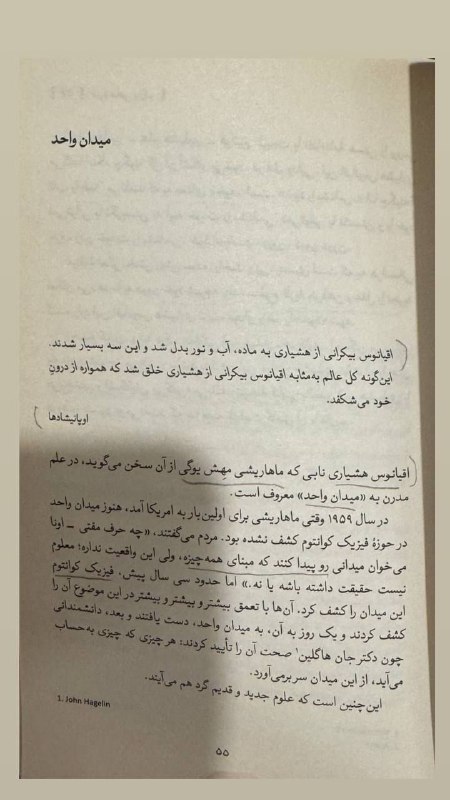 میدان واحد
اقیانوس بیکرانی از هشیاری به ماده، آب و نور بدل شد و این سه بسیار شدند.
این‌گونه کل عالم به‌مثابه اقیانوس بیکرانی از هشیاری خلق شد که همواره از درونِ
خود می‌شکفد.
اوپانیشادها
اقیانوس هشیاری نابی که ماهاریشی مهِش یوگی از آن سخن می‌گوید، در علم
مدرن به «میدان واحد» معروف است.
در سال ۱۹۵۹ وقتی ماهاریشی برای اولین‌بار به امریکا آمد، هنوز میدان واحد
در حوزهٔ فیزیک کوانتوم کشف نشده بود. مردم می‌گفتند، «چه حرف مفتی ــ اونا
می‌خوان میدانی رو پیدا کنند که مبنای همه‌چیزه، ولی این واقعیت نداره؛ معلوم
نیست حقیقت داشته باشه یا نه.» اما حدود سی سال پیش. فیزیک کوانتوم
این میدان را کشف کرد. آن‌ها با تعمق بیشتر و بیشتر و بیشتر در این موضوع آن را
کشف کردند و یک روز به آن، به میدان واحد، دست یافتند و بعد، دانشمندانی
چون دکتر جان هاگلین۱ صحت آن را تأیید کردند: هر چیزی که چیزی به‌حساب
می‌آید، از این میدان سر برمی‌آورد.
این‌چنین است که علوم جدید و قدیم گرد هم می‌آیند.
1. John Hagelin
۵۵